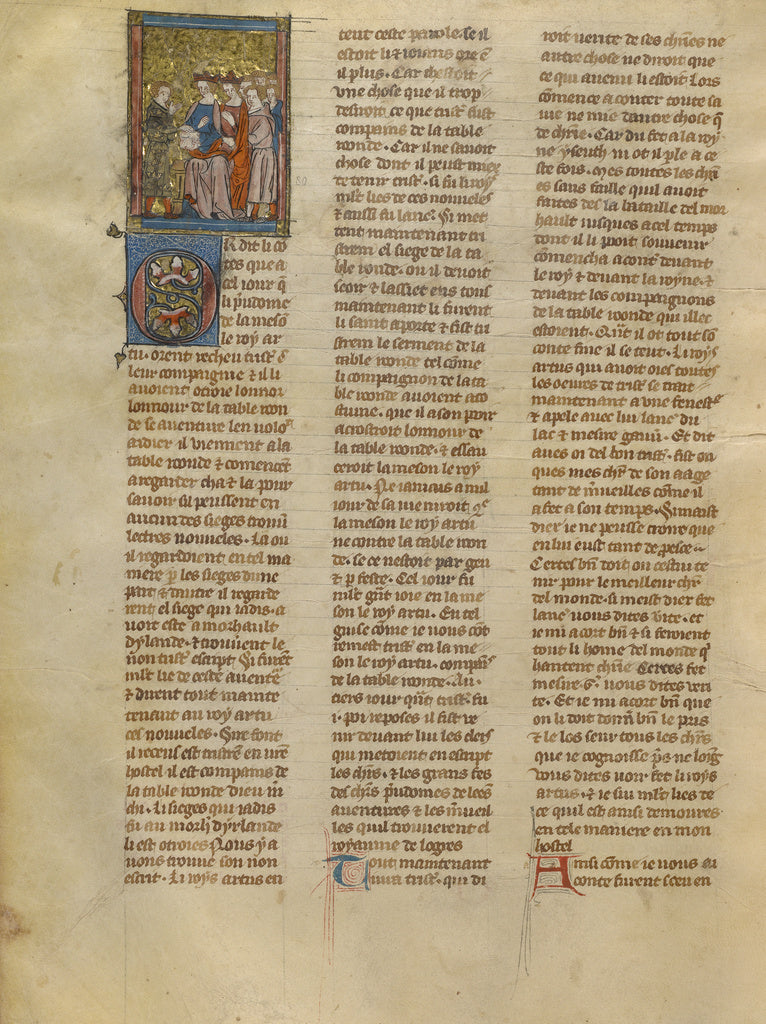 R dit li co
tes que a
cel iour q̄
li p̄udome
de la meso
le roy ar
tu. orent recheu trist' ē
leur compaignie & il li
auoient otroie lonnor
lonnour de la table ron
de se auenture len uolo
aidier il viennent a la
table ronde & comencēt
a regarder cha & la. pour
sauoir sil peussent en
aucun des sieges trouu
lectres nouueles. La ou
il regardoient en tel ma
niere p̄ les sieges dune
part & dautre il regarde
rent el siege qui iadis. a
uoit este a morhault
dyrlande. & trouuent le
non trist' escript. Si furēt
mlt' lie de ceste auentē
& dirent tout mainte
tenant au roy artu
ces nouueles. Sire font
il recheus est tristrē en urē
hostel il est compains de
la table ronde dieu m̄
chi. Li sieges qui iadis
fu au morh' dyrlande
li est otroies Nous y a
uons trouue son non
escrit. Li roys artus en
tent ceste parole se il
estoit lié & ioians
il plus. Car che estoit
vne chose que il trop
desiroit ce que trist' fust
compains de la table
ronde. Car il ne sauoit
chose dont il peust miex
retenir trist'. si fu li roys
mlt' lies de ces nouueles
& aussi fu lanc'. Si met
tent maintenant tri
strem el siege de la ta
ble ronde. ou il deuoit
seoir & lassiet ens tout
maintenant li furent
li saint aporte & fist tri
strem le serment de la
table ronde tel cōme
li compaignon de la ta
ble ronde auoient aco
stume. que il a son pooir
acroistroit lonnour de
la table ronde. & essau
ceroit la meson le roy
artu. Ne iamais a nul
iour de sa uie niroit
la meson le roy artu
ne contre la table ron
de. se ce nestoit par geu
& p̄ feste. Cel iour fu
mlt' grāt ioie en la me
son le roy artu. En tel
guise cōme ie uous cōt
remest trist' en la me
son le roy artu. compaīs
de la table ronde. Au
tiers iour qūt trist' fu
i. poi reposes il fist ve
nir deuant lui les clers
qui metoient en escript
les chrs. & les grans fes
des chrs p̄udomes de leēs
auentures & les m̄ueil
les quil trouuerent el
royaume de logres
Tout maintenant
uiua trist'. qui di
roit verite de ses chrēs ne
autre chose ne diroit que
ce qui auenu li estoit Lors
cōmence a conter toute sa
uie ne mie dautre chose q̄
de chrie. Car du fet a la roy
ne yseuth ni ot il ple a ce
ste fois. mes toutes les chrēs
es sans faille quil auoit
faites des la bataille del mor
hault iusques a cel temps
dont il li pooit souuenir
cōmencha a cont' deuant
le roy & deuant la royne. &
deuant les compaignons
de la table ronde qui illec
estoient. Qūt il ot tout sō
conte fine il se teut. Li roys
artus qui auoit oies toutes
les oeures de trist' se trait
maintenant a vne fenestr'
& apele auec lui lanc' du
lac & mesire gauū. Et dit
aues oi del bon trist'. fist on
ques mes chr' de son aage
tant de m̄ueilles cōme il
a fet a son temps. Si maist
dier ie ne peusse croire que
en lui eust tant de p̄esce
Certes bn̄ doit on cestui te
nir pour le meilleur chr'
del monde. si meist dier fet
lanc' uous dites uite. et
ie mi acort bn̄ & si feroient
tout li home del monde q̄
hantent chrie Certes fet
mesire G. uous dites veri
te. Et ie mi acort bn̄ que
on li doit donn' bn̄ le pris
& le los seur tous les chrs
que ie cognoisse p̄s ne loīg
Vous dites uoir fet li roys
artus. & ie sui mlt' lies de
ce quil est ainsi demoures
en tele maniere en mon
hostel
Ainsi cōme ie uous ai
conte furent sceu en